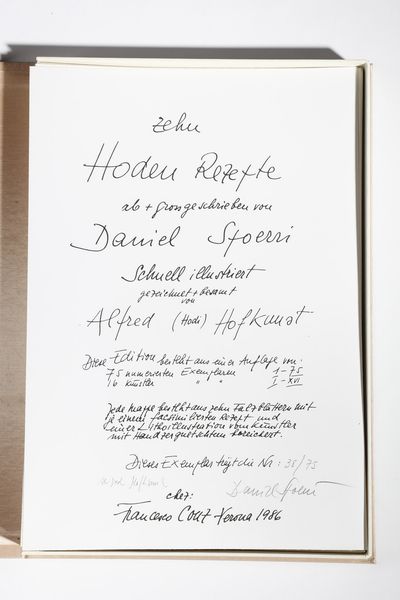 zehn
Hoden Rezepte
ab + grossgeschrieben von
Daniel Spoerri
Schnell illustriert
gezeichnet + besamt
von
Alfred (Hodi) Hofkunst
Diese Edition besteht aus einer Auflage von:
75 numerierten Exemplaren 1-75
16 Künstler " " I-XVI
Jede Mappe besteht aus zehn Falzblättern mit
je einem facsimilierten Rezept und
einer Lithoillustration vom Künstler
mit Handzerquetschten bereichert.
Dieses Exemplar trägt die Nr: 35/75
Hofkunst Daniel Spoerri
chez:
Francesco Conz Verona 1986